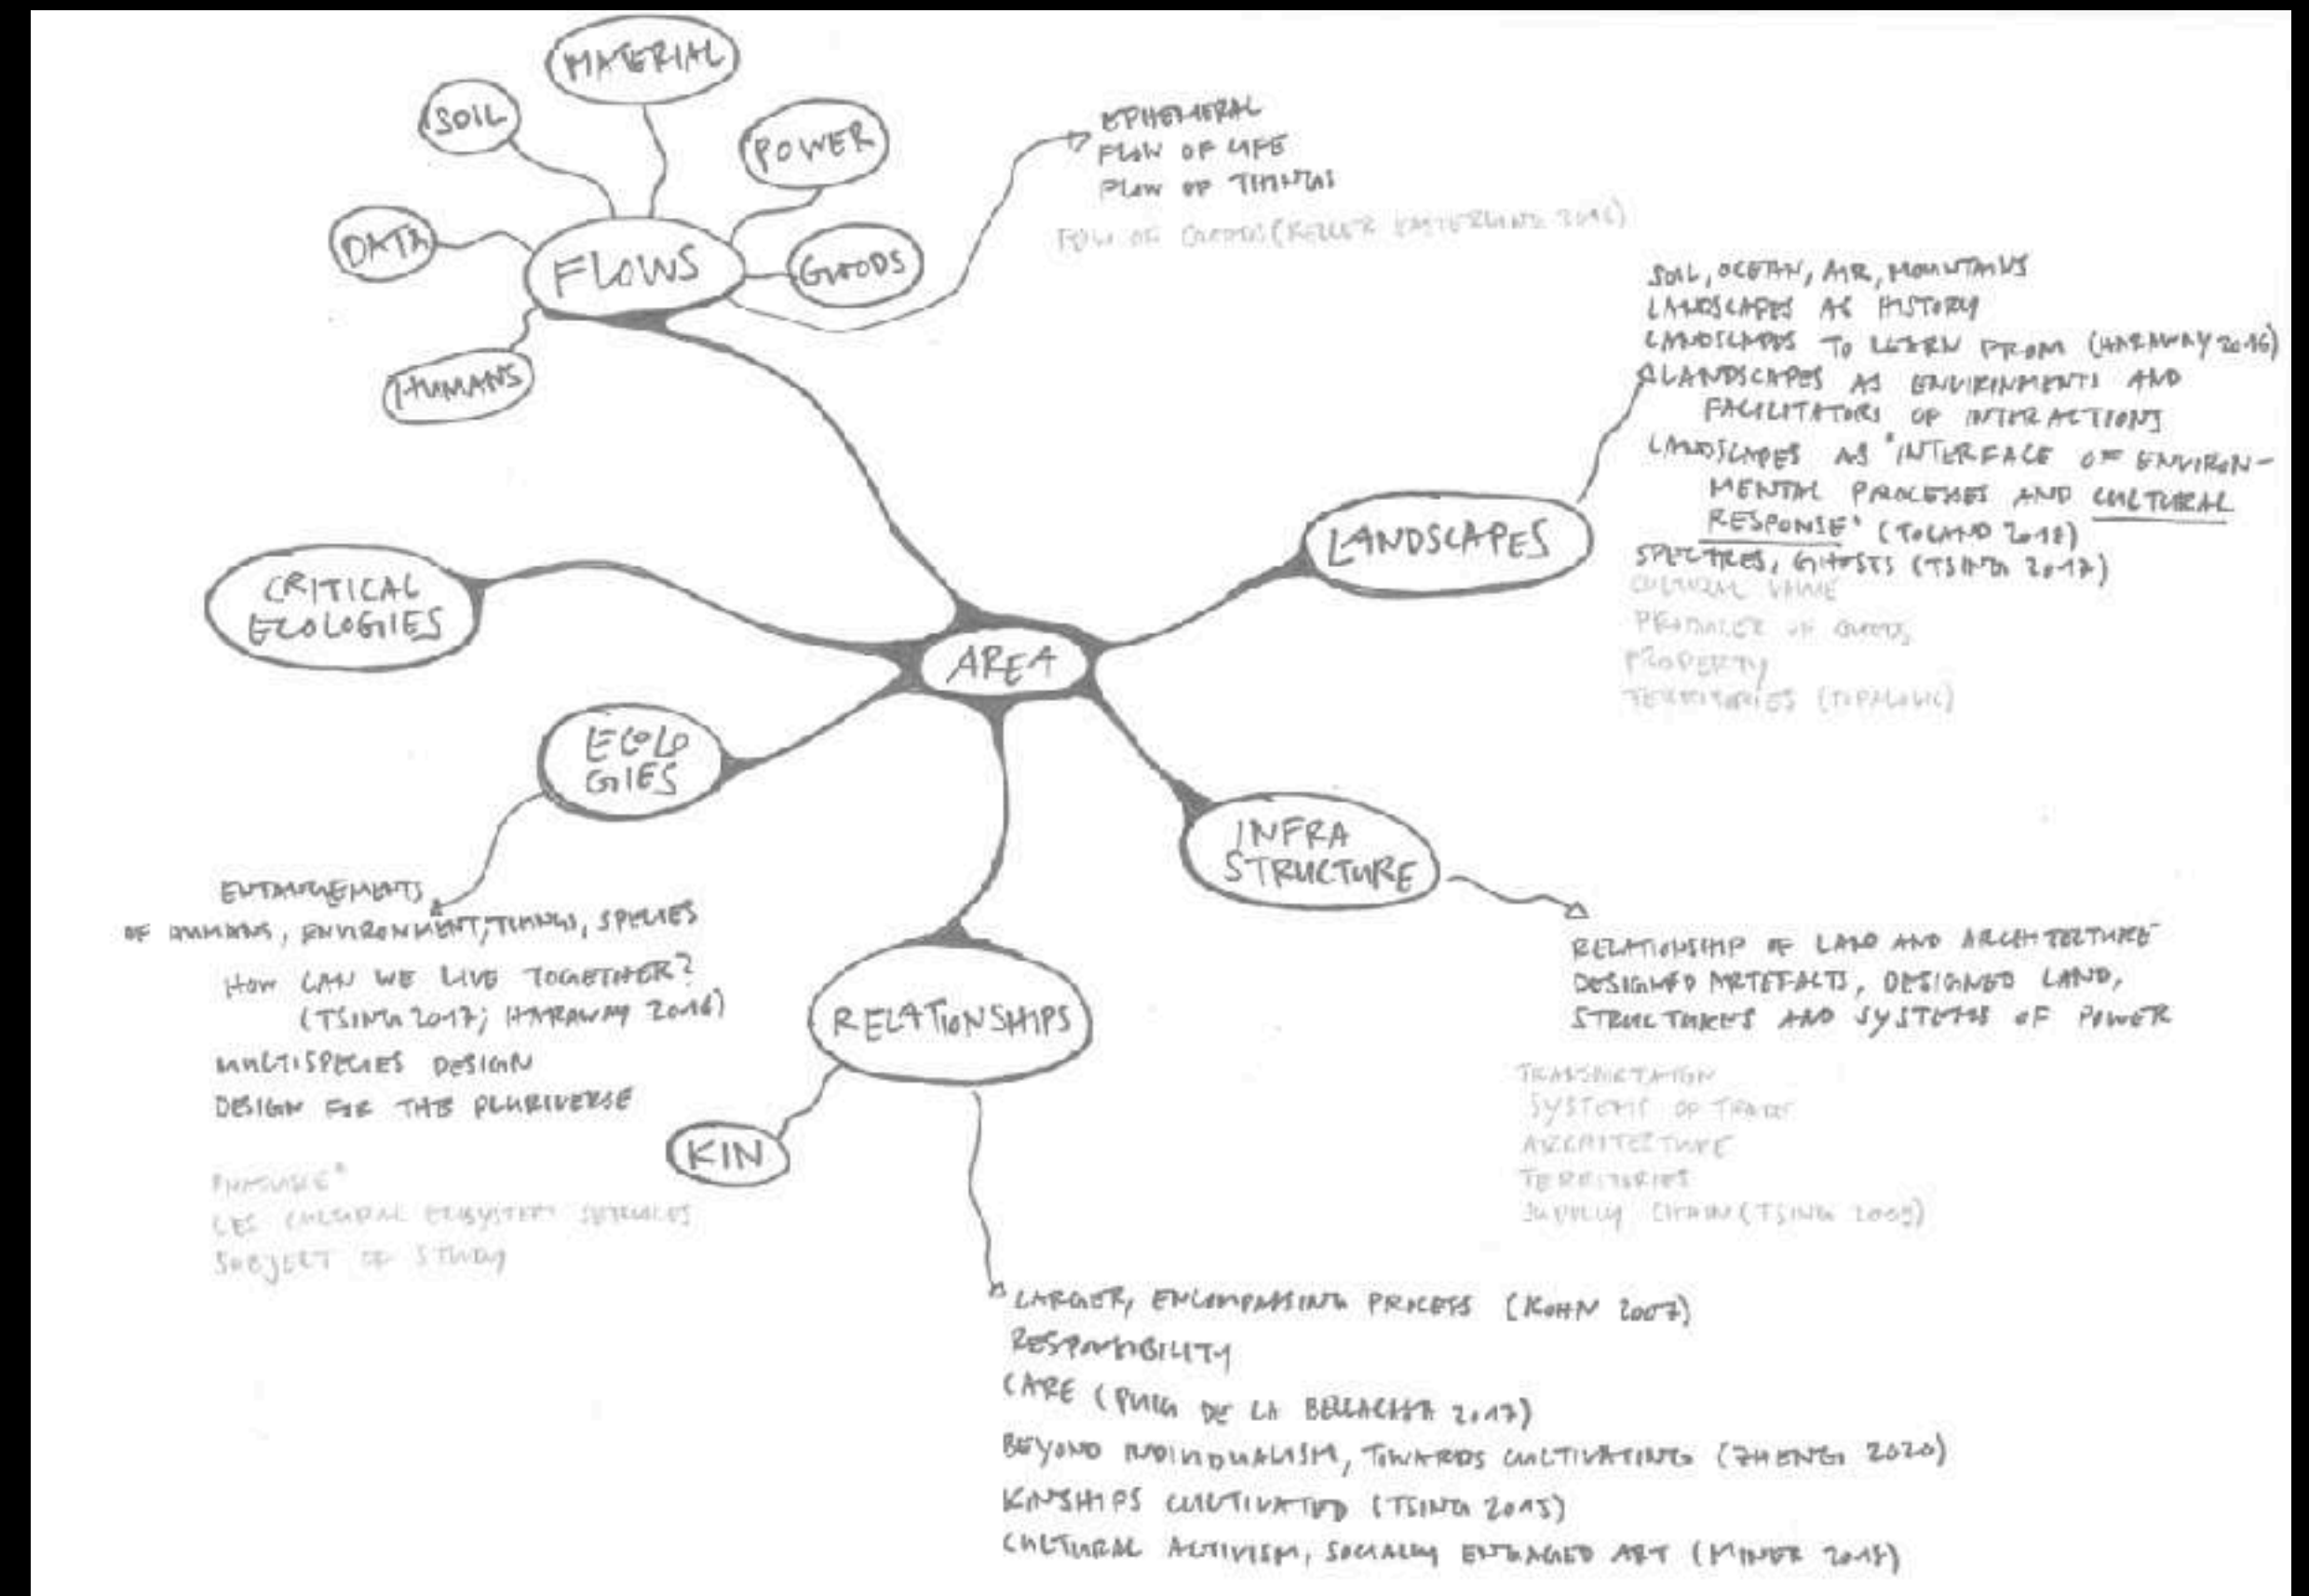 MATERIAL
SOIL
POWER
DATA
FLOWS
GOODS
HUMANS
EPHEMERAL
FLOW OF LIFE
FLOW OF THINGS
FLOW OF GOODS (KELLER EASTERLING 2016)
SOIL, OCEAN, AIR, MOUNTAINS
LANDSCAPES AS HISTORY
LANDSCAPES TO LEARN FROM (HARAWAY 2016)
LANDSCAPES AS ENVIRINMENTS AND
FACILITATORS OF INTERACTIONS
LANDSCAPES AS "INTERFACE OF ENVIRON-
MENTAL PROCESSES AND CULTURAL
RESPONSE" (TOLAND 2018)
SPECTRES, GHOSTS (TSING 2017)
CULTURAL VALUE
PRODUCER OF GOODS
PROPERTY
TERRITORIES (TOPALOVIC)
LANDSCAPES
CRITICAL
ECOLOGIES
AREA
ECOLO
GIES
INFRA
STRUCTURE
ENTANGEMENTS
OF HUMANS, ENVIRONMENT, THINGS, SPECIES
HOW CAN WE LIVE TOGETHER?
(TSING 2017; HARAWAY 2016)
MULTISPECIES DESIGN
DESIGN FOR THE PLURIVERSE
CES CULTURAL ECOSYSTEM SERVICES
SUBJECT OF STUDY
RELATIONSHIPS
KIN
RELATIONSHIP OF LAND AND ARCHITECTURE
DESIGNED ARTEFACTS, DESIGNED LAND,
STRUCTURES AND SYSTEMS OF POWER
TRANSPORTATION
SYSTEMS OF TRADE
ARCHITECTURE
TERRITORIES
SUPPLY CHAIN (TSING 2009)
LARGER, ENCOMPASSING PROCESS (KOHN 2007)
RESPONSIBILITY
CARE (PUIG DE LA BELLACASA 2017)
BEYOND INDIVIDUALISM, TOWARDS CULTIVATING (ZHENG 2020)
KINSHIPS CULTIVATED (TSING 2015)
CULTURAL ACTIVISM, SOCIALLY ENGAGED ART (MINER 2018)